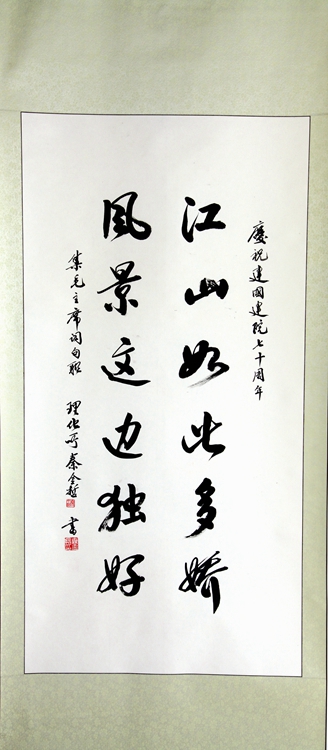 慶祝建国建院七十周年
江山如此多娇
风景这边独好
集毛主席词句联
理化所秦金哲
书